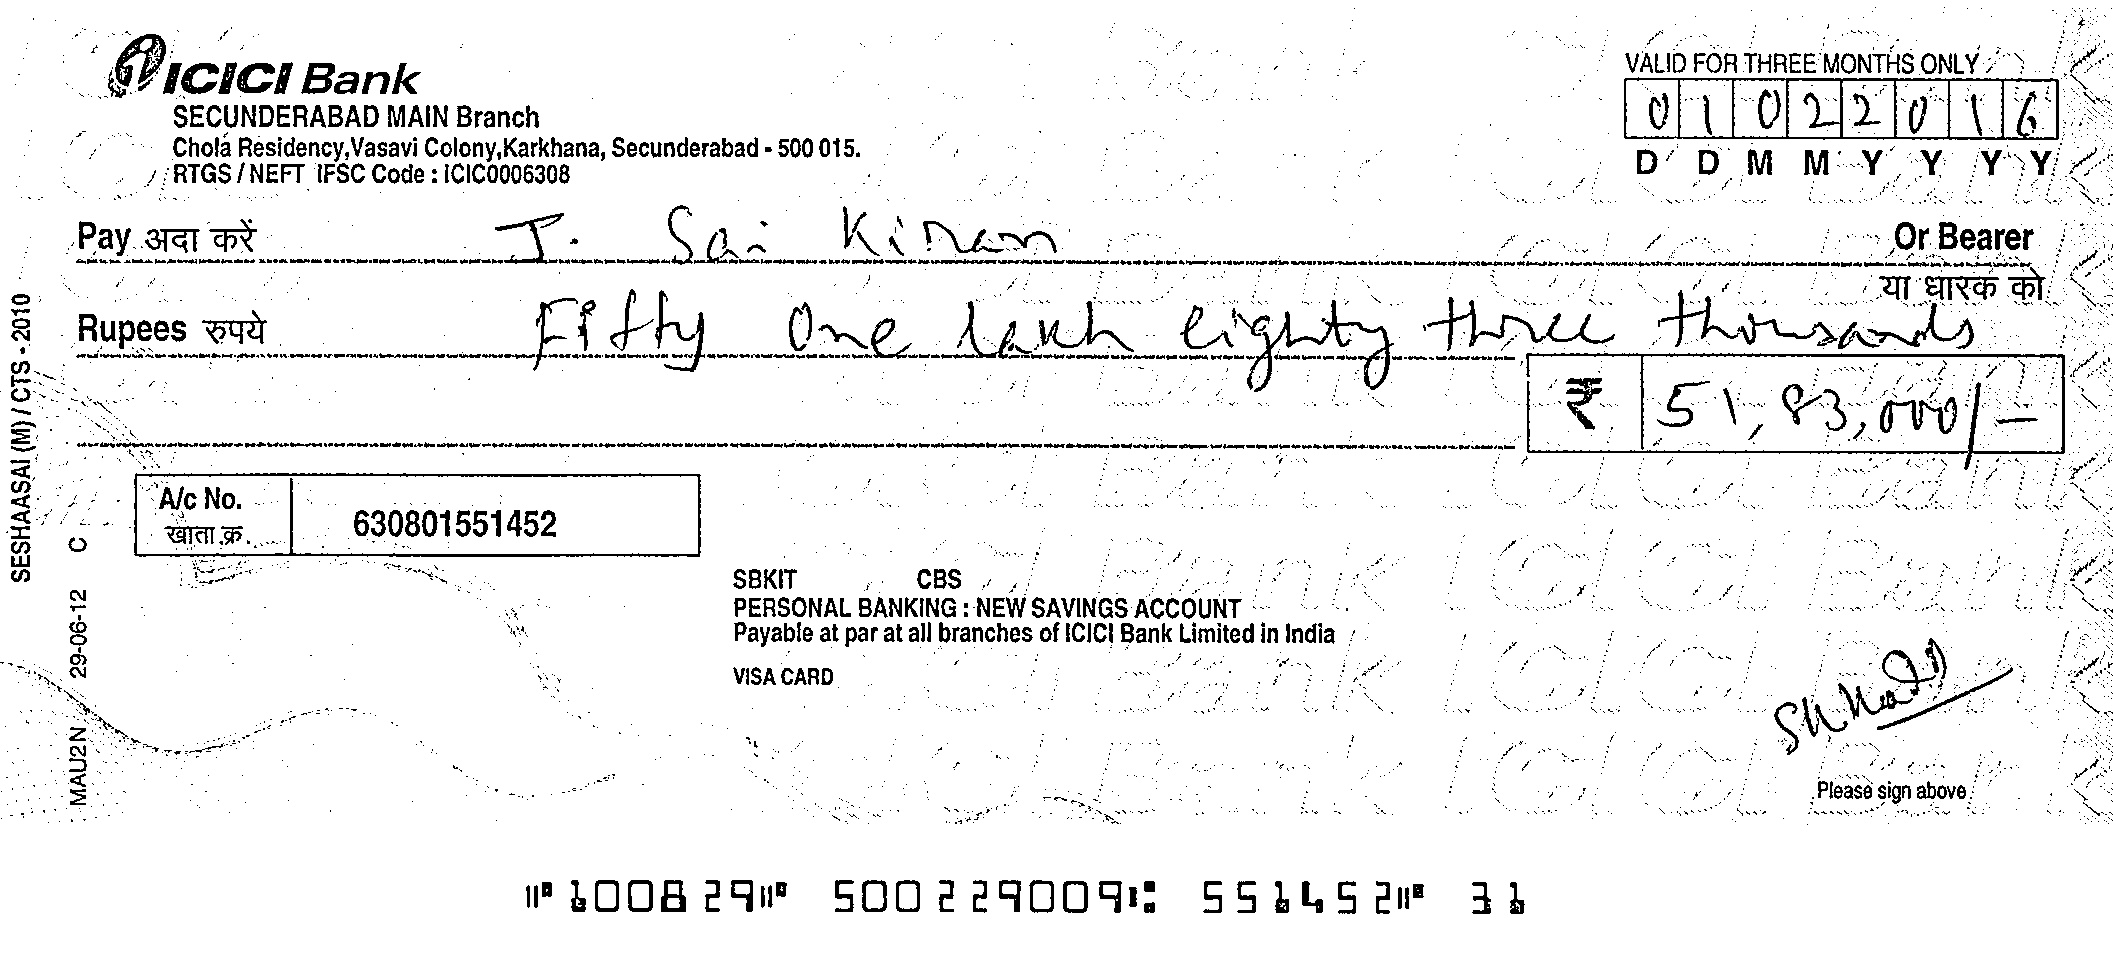 ICICI Bank
SECUNDERABAD MAIN Branch
Chola Residency,Vasavi Colony,Karkhana, Secunderabad - 500 015.
RTGS / NEFT IFSC Code : ICIC0006308
VALID FOR THREE MONTHS ONLY
0 1 0 2 2 0 1 6
D D M M Y Y Y Y
Pay अदा करें J. Sai Kiran Or Bearer
या धारक को
Rupees रुपये Fifty One lakh eighty three thousands
₹ 51,83,000/-
A/c No. 630801551452
खाता क्र.
SBKIT CBS
PERSONAL BANKING : NEW SAVINGS ACCOUNT
Payable at par at all branches of ICICI Bank Limited in India
VISA CARD
Please sign above
SESHAASAI (M) / CTS - 2010
MAU2N 29-06-12 C
⑈100829⑈ 500229009⑆ 551452⑈ 31